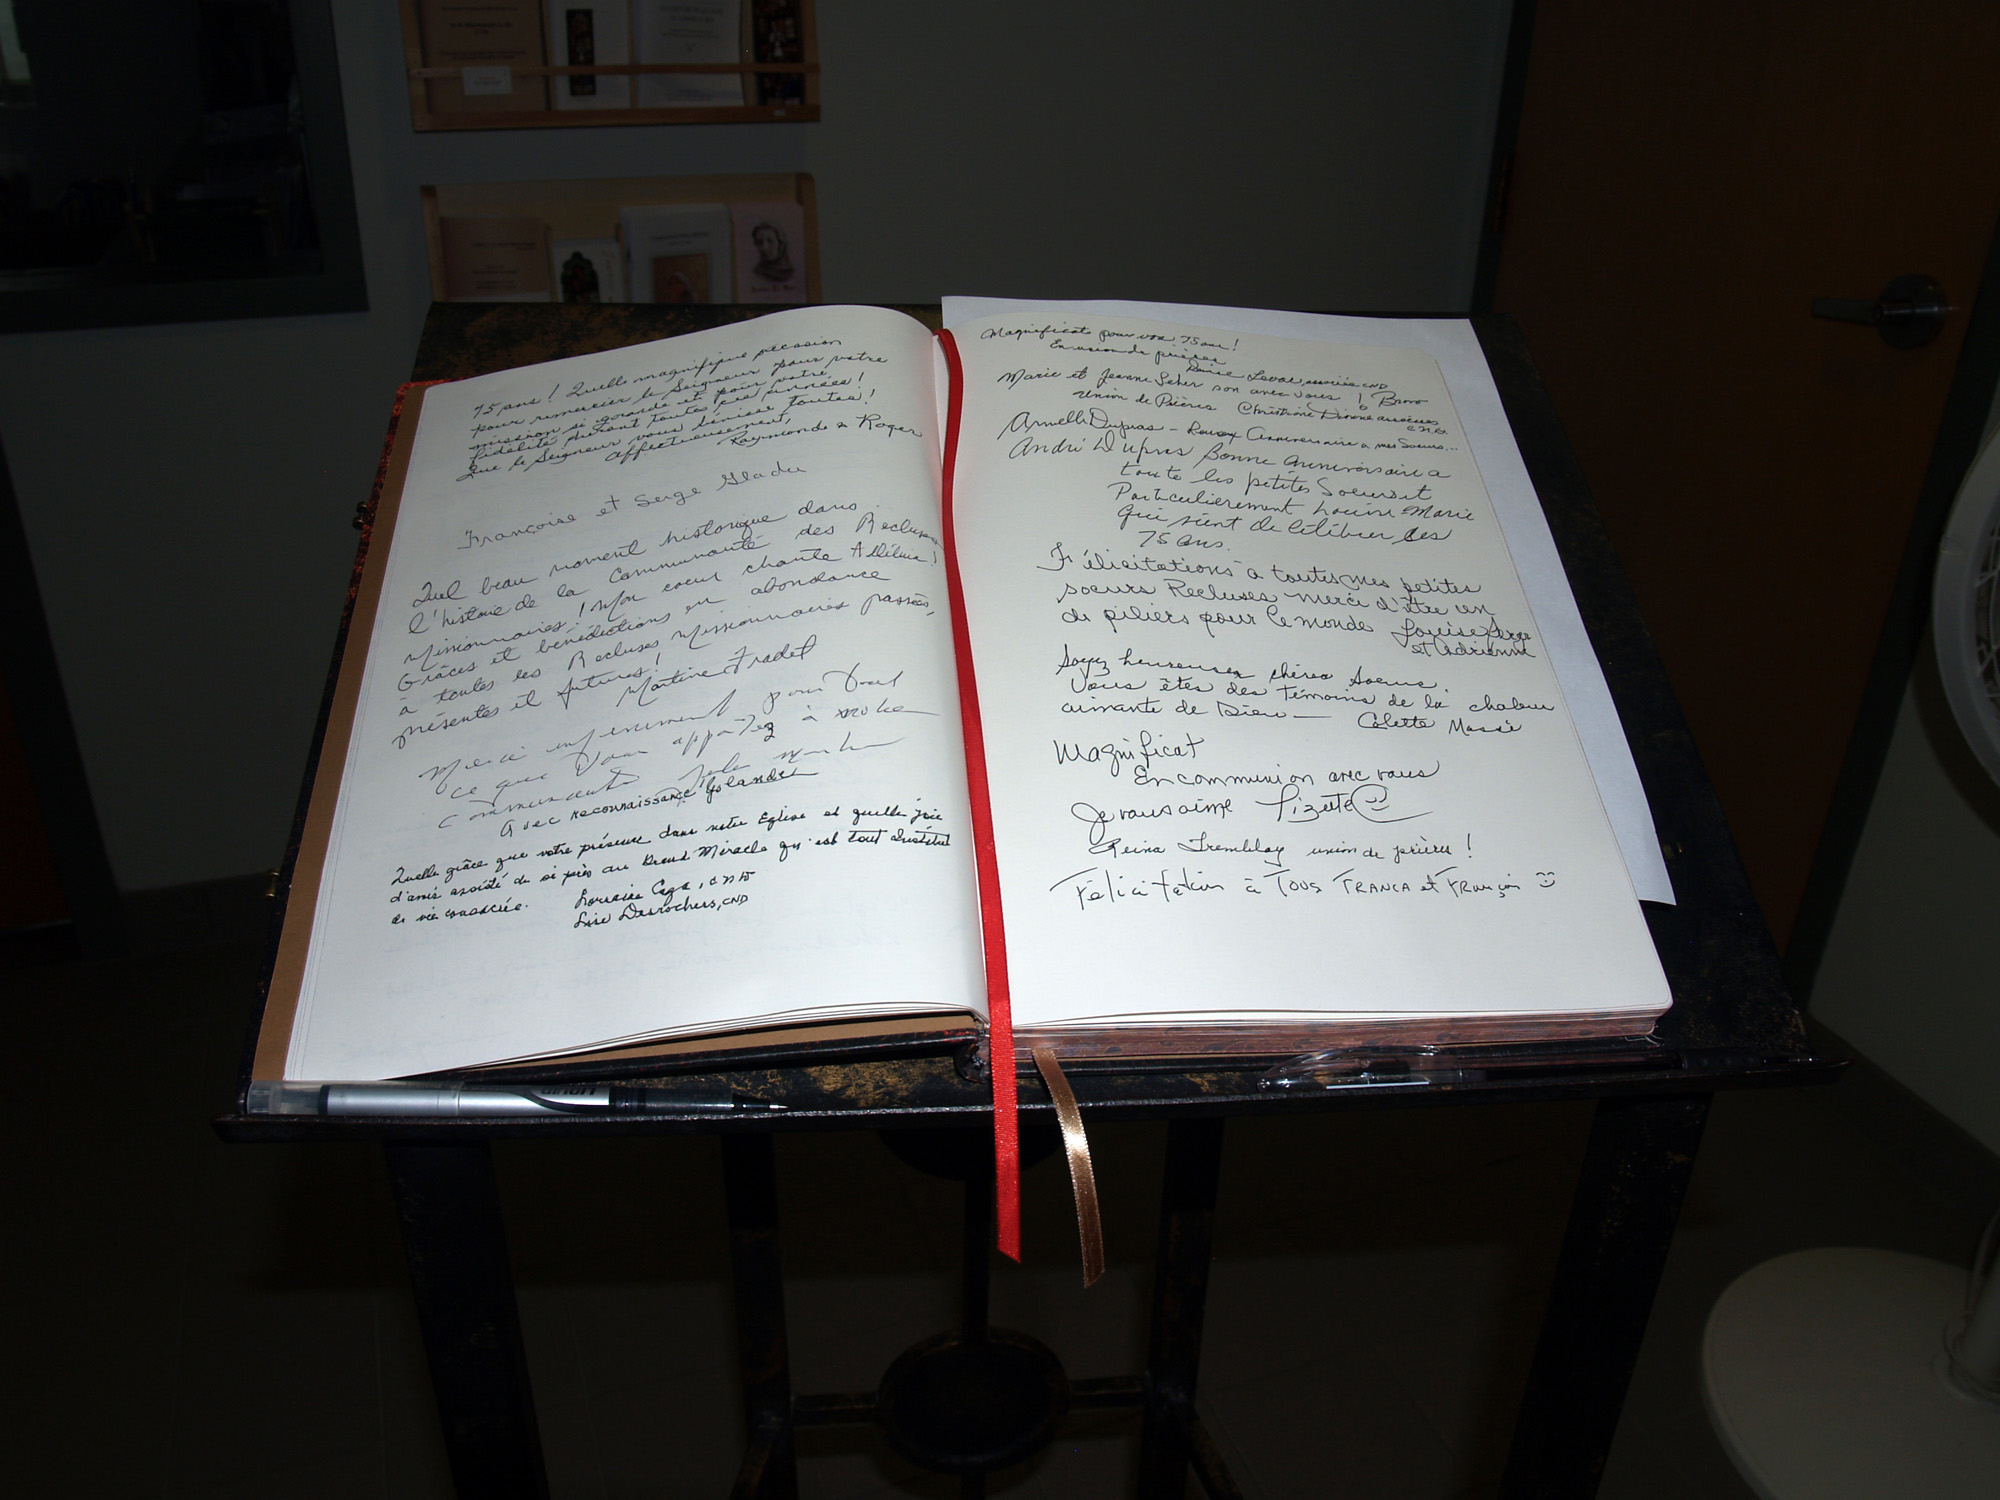 75 ans ! Quelle magnifique occasion
pour remercier le Seigneur pour votre
mission si grande et pour votre
fidélité durant toutes ces années !
Que le Seigneur vous bénisse toutes !
affectueusement,
Raymonde & Roger
Françoise et Serge Gladu
Quel beau moment historique dans
l'histoire de la Communauté des Recluses
Missionnaires ! Mon coeur chante Alléluia !
Grâces et bénédictions en abondance
à toutes les Recluses Missionnaires passées,
présentes et futures !
Martine Fradet
Merci infiniment pour tout
ce que vous apportez à notre
communauté
Avec reconnaissance Yolande
Quelle grâce que votre présence dans notre Église et quelle joie
d'avoir assisté de si près au Grand Miracle qu'est tout Institut
de vie consacrée.
Lorraine Caza, CND
Lise Desrochers, CND
Magnificat pour vos 75 ans !
En union de prières
associée CND
Marie et Jeanne Leber son avec vous ! Bravo
Union de Prières Christiane Dionne associées
C.N.D.
Armelle Dupras - Anniversaire a mes Soeurs...
André Dupras Bonne anniversaire a
toute les petites Soeurs et
Particulierement Louise Marie
Qui vient de célébrer ces
75 ans.
Félicitations à toutes mes petites
soeurs Recluses merci d'être un
de piliers pour le monde Louise Serge
et Adrienne
Soyez heureuses chères soeurs.
Vous êtes des témoins de la chaleur
aimante de Dieu — Colette Massé
Magnificat
En communion avec vous
Je vous aime Lizette
Reina Tremblay union de prière !
Félicitation à TOUS FRANCA et François